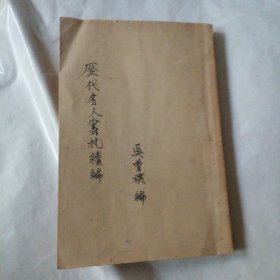 歴代名人書札續編
吳曾祺編